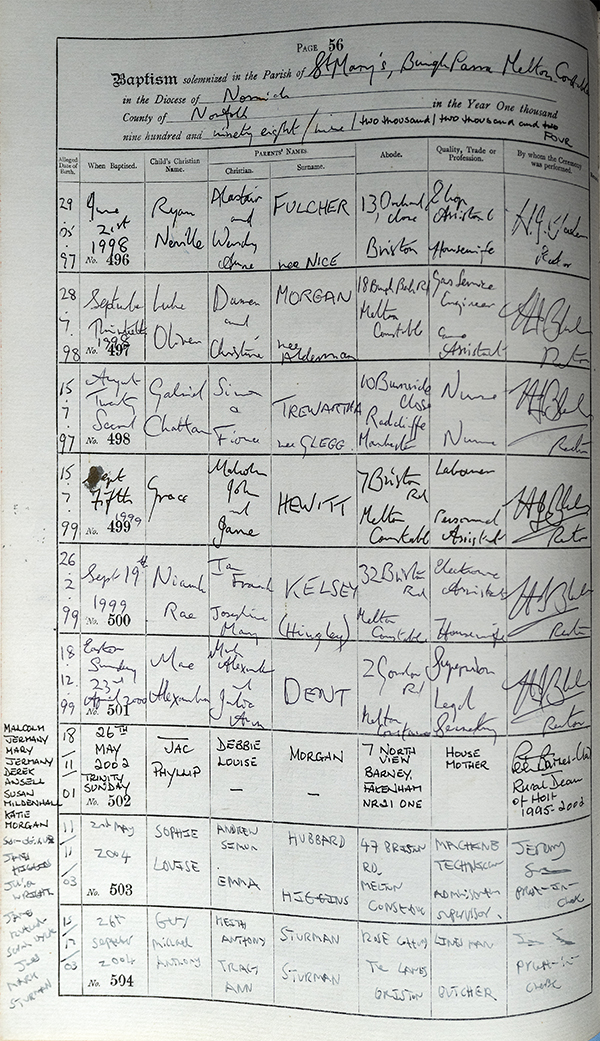 PAGE 56
Baptism solemnized in the Parish of St Mary's, Burgh Parva Melton Constable
in the Diocese of Norwich
County of Norfolk in the Year One thousand
nine hundred and ninety eight / nine / two thousand / two thousand and two
FOUR
Alleged Date of Birth. When Baptised. Child's Christian Name. PARENTS' NAMES. Christian. Surname. Abode. Quality, Trade or Profession. By whom the Ceremony was performed.
29 June Ryan Alastair FULCHER 13, Orchard Shop
21st and Close Assistant
1998 Neville Wendy Briston Housewife Rector
97 No. 496 Anne nee NICE
28 September Luke Darren MORGAN Gas Service
7 and Melton Engineer
1998 Oliver Christine nee Constable and
98 No. 497 Alderman Assistant Rector
15 August Gabriel Simon TREWARTHA 10 Burnside Nurse
7 Twenty Close
Second Chattan Fiona nee GLEGG Radcliffe Nurse
97 No. 498 Manchester Rector
15 Sept Grace Malcolm HEWITT 7 Briston Labourer
7 Fifth John Rd
1999 and Melton Personnel
99 No. 499 Jane Constable Assistant Rector
26 Sept 19th Niamh Ian KELSEY 32 Briston Electronic
2 Frank Rd Assistant
1999 Rae Josephine (Hingley) Melton Housewife
99 No. 500 Mary Constable Rector
18 Easter Mae Mark DENT 2 Gordon Supervisor
12 Sunday Alexander Rd
23rd Alexandra & Julia Melton Legal
99 April 2000 No. 501 Ann Constable Secretary Rector
18 26TH JAC DEBBIE MORGAN 7 NORTH HOUSE
11 MAY PHYLLIP LOUISE VIEW MOTHER
2002 — BARNEY, Rural Dean
TRINITY FAKENHAM of Holt
01 SUNDAY No. 502 — NR21 0NE 1995-2002
MALCOLM
JERMANY
MARY
JERMANY
DEREK
ANSELL
SUSAN
MILDENHALL
KATIE
MORGAN
11 2nd May SOPHIE ANDREW HUBBARD 47 BRISTON MACHINE JEREMY
11 2004 SIMON RD. TECHNICIAN
LOUISE EMMA HIGGINS MELTON PRIEST-IN-
03 No. 503 CONSTABLE SUPERVISOR. CHARGE
JULIA
WRIGHT
15 26th GUY KEITH STURMAN ROSE LINESMAN
September Michael ANTHONY
2004 ANTHONY TRACY STURMAN PRIEST-IN-
03 No. 504 ANN BUTCHER CHARGE
MARK
STURMAN